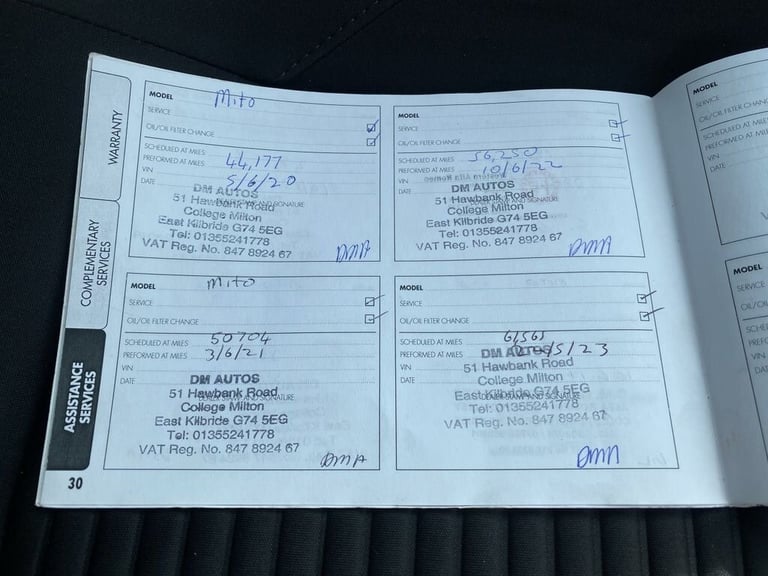 WARRANTY
COMPLEMENTARY
SERVICES
ASSISTANCE
SERVICES
30
MODEL Mito
SERVICE
OIL/OIL FILTER CHANGE
SCHEDULED AT MILES
PREFORMED AT MILES 44,177
VIN
DATE 5/6/20
DM AUTOS
51 Hawbank Road
College Milton
East Kilbride G74 5EG
Tel: 01355241778
VAT Reg. No. 847 8924 67
DMA
MODEL
SERVICE
OIL/OIL FILTER CHANGE
SCHEDULED AT MILES 56,250
PREFORMED AT MILES 10/6/22
VIN
DATE
DM AUTOS
51 Hawbank Road
College Milton
East Kilbride G74 5EG
Tel: 01355241778
VAT Reg. No. 847 8924 67
DMA
MODEL Mito
SERVICE
OIL/OIL FILTER CHANGE
SCHEDULED AT MILES 50704
PREFORMED AT MILES 3/6/21
VIN
DATE
DM AUTOS
51 Hawbank Road
DEALER STAMP AND SIGNATURE
College Milton
East Kilbride G74 5EG
Tel: 01355241778
VAT Reg. No. 847 8924 67
DMA
MODEL
SERVICE
OIL/OIL FILTER CHANGE
SCHEDULED AT MILES 61,565
PREFORMED AT MILES /5/23
VIN
DATE
DM AUTOS
51 Hawbank Road
College Milton
East Kilbride G74 5EG
DEALER STAMP AND SIGNATURE
Tel: 01355241778
VAT Reg. No. 847 8924 67
DMA
MODEL
SERVICE
OIL/OIL FILTER CHANG
SCHEDULED AT MILES
PREFORMED AT MILES
VIN
DATE
MODEL
SERVICE
OIL/OIL
SCHED
PREFO
VIN
DATE